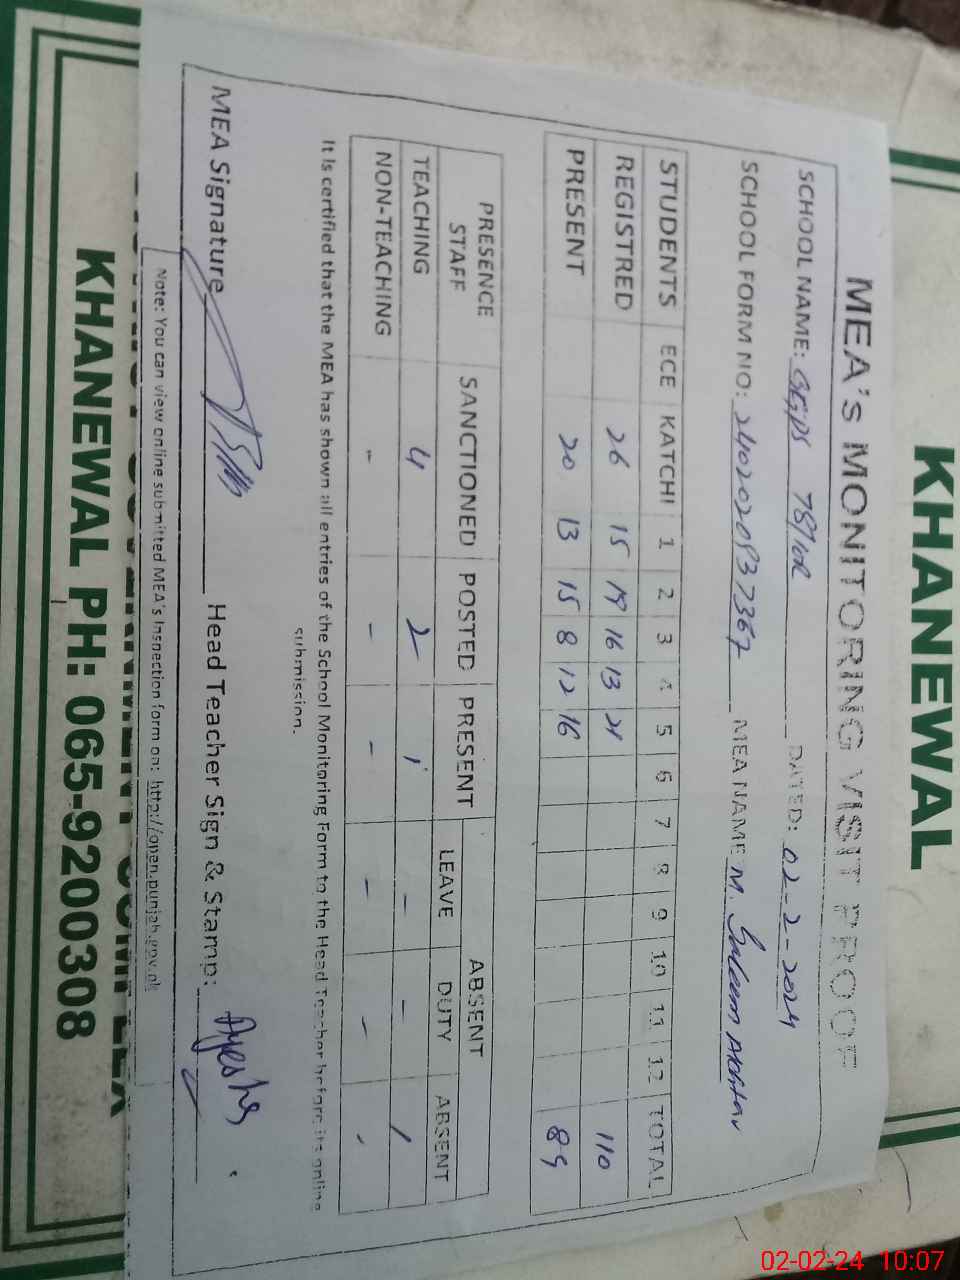 KHANEWAL
MEA's MONITORING VISIT PROOF
SCHOOL NAME: GGPS 78/10R DATED: 02-2-2024
SCHOOL FORM NO: MEA NAME M. Saleem Akhtar
STUDENTS ECE KATCHI 1 2 3 4 5 6 7 8 9 10 11 12 TOTAL
REGISTRED 26 15 19 16 13 21 110
PRESENT 20 13 15 8 12 16 89
PRESENCE STAFF SANCTIONED POSTED PRESENT ABSENT
LEAVE DUTY ABSENT
TEACHING 4 2 1 - - 1
NON-TEACHING - - - - - -
It is certified that the MEA has shown all entries of the School Monitoring Form to the Head Teacher before its online
submission.
MEA Signature Head Teacher Sign & Stamp: Ayesha
Note: You can view online submitted MEA's Inspection form on: http://open.punjab.gov.pk
KHANEWAL PH: 065-9200308
02-02-24 10:07